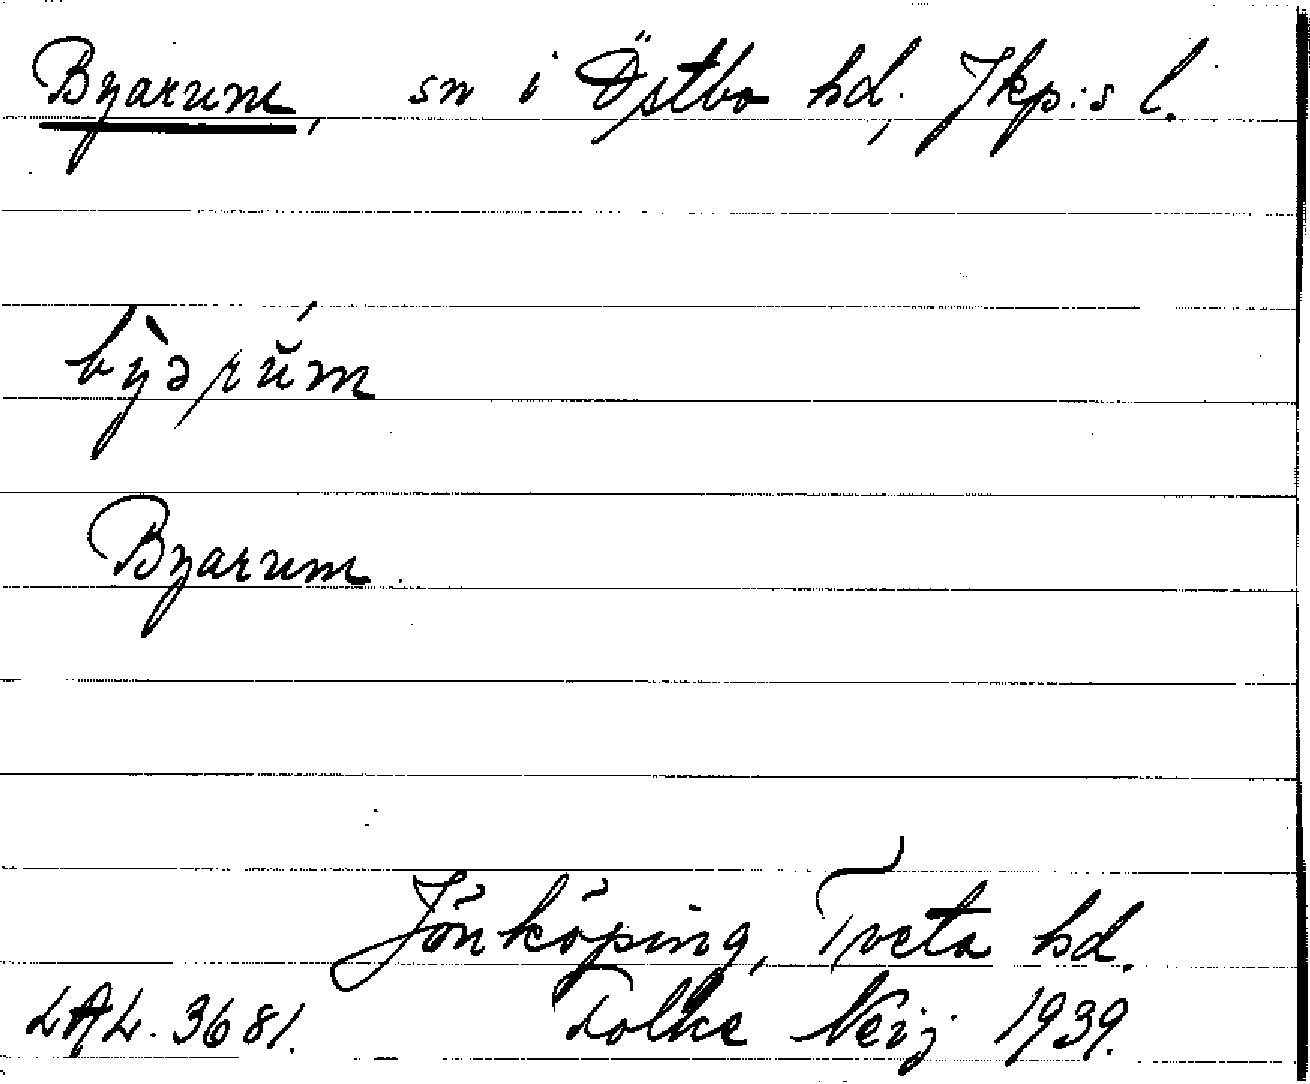 Byarum, sn i Östbo hd, Jkp:s l.
bỳərŭ́m
Byarum.
Jönköping, Tveta hd.
LAL. 3681. Folke Neij 1939.